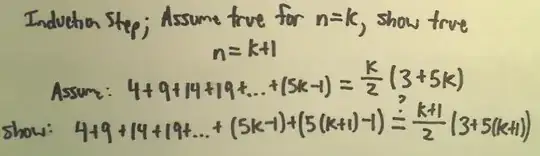 Induction Step; Assume true for n=k, show true
n=k+1
Assume: 4+9+14+19+...+(5k-1) = k/2 (3+5k)
Show: 4+9+14+19+...+(5k-1)+(5(k+1)-1) ?= k+1/2 (3+5(k+1))